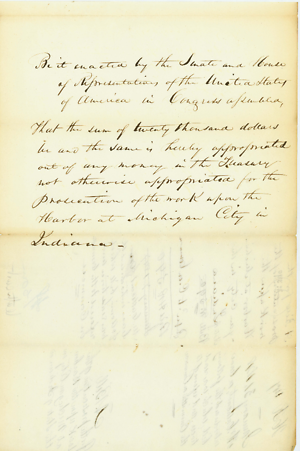 Be it enacted by the Senate and House
of Representatives of the United States
of America in Congress assembled,
That the sum of twenty thousand dollars
be are the same is hereby appropriated
out of any money in the Treasury
not otherwise appropriated for the
Prosecution of the work upon the
Harbor at Michigan City in
Indiana